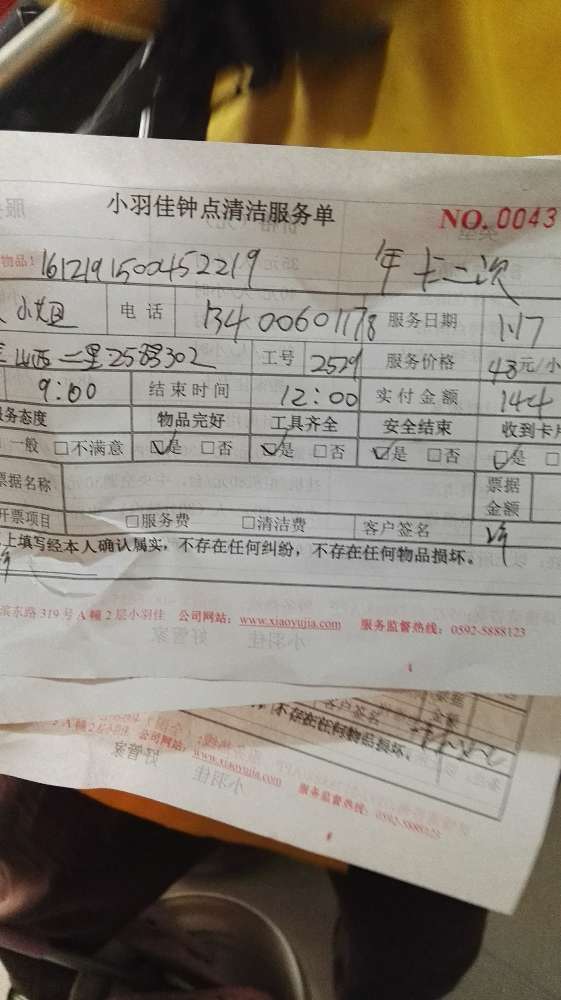 小羽佳钟点清洁服务单 NO. 0043
物品: 161219150045 2219 年卡二次
小姐 电话 13400601178 服务日期 1.17
山西二里 302 工号 2529 服务价格 48元/小
9:00 结束时间 12:00 实付金额 144
服务态度 物品完好 工具齐全 安全结束 收到卡片
一般 □不满意 ☑是 □否 ☑是 □否 ☑是 □否 ☑是 □
票据名称 票据金额
开票项目 □服务费 □清洁费 客户签名
上填写经本人确认属实，不存在任何纠纷，不存在任何物品损坏。
滨东路 319 号 A 幢 2 层小羽佳 公司网站：www.xiaoyujia.com 服务监督热线：0592-5888123
客户签名 金额
不存在任何物品损坏。
A 幢 2 层小羽佳 公司网站：www.xiaoyujia.com 服务监督热线：0592-5888123